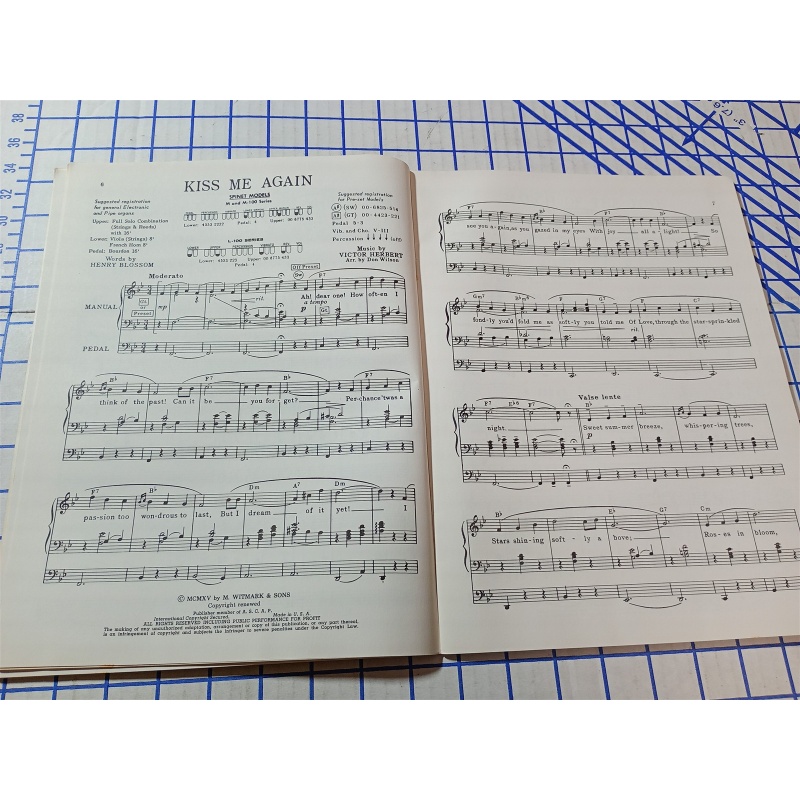 6
KISS ME AGAIN
Suggested registration
for general Electronic
and Pipe organs
Upper: Full Solo Combination
(Strings & Reeds)
with 16'
Lower: Viola (Strings) 8'
French Horn 8'
Pedal: Bourdon 16'
Words by
HENRY BLOSSOM
SPINET MODELS
M and M-100 Series
Lower: 4532 2222 Pedal: 4 Upper: 00 8775 433
L-100 SERIES
Lower: Pedal: 4 Upper: 00 8775 433
Suggested registration
for Pre-set Models
(SW) 00-6815-514
(GT) 00-4423-221
Pedal 5-3
Vib. and Cho. V-III
Percussion (off)
Music by
VICTOR HERBERT
Arr. by Don Wilson
Moderato
Off Preset
Sw
MANUAL
Gt.
or
Preset
mp
rit.
Ah! dear one! How often I
a tempo
p
PEDAL
Bb F7 Bb F7
think of the past! Can it be you forget? Perchance 'twas a
F7 Bb Dm A7 Dm
passion too wondrous to last, But I dream of it yet! I
© MCMXV by M. WITMARK & SONS
Copyright renewed
Publisher member of A. S. C. A. P.
International Copyright Secured. Made in U. S. A.
ALL RIGHTS RESERVED INCLUDING PUBLIC PERFORMANCE FOR PROFIT
The making of any unauthorized adaptation, arrangement or copy of this publication, or any part thereof,
is an infringement of copyright and subjects the infringer to severe penalties under the Copyright Law.
7
see you again, as you gazed in my eyes With joy all alight! So
Gm7 Bbm6 F G7
fondly you'd fold me as softly you told me Of Love, through the star-sprinkled
rit.
F7 Eb6 F7
Valse lente
Bb
night Sweet summer breeze, whispering trees,
p
Bb G7 Cm
Stars shining softly above; Roses in bloom,
38
36
34
32
30
3"